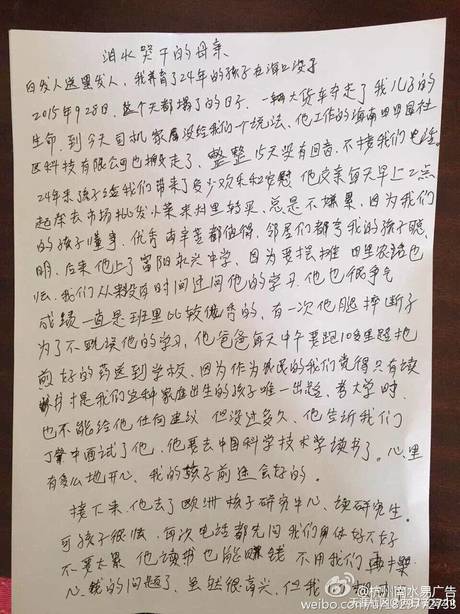 泪水哭干的母亲
白发人送黑发人，我养育了24年的孩子在海口没了
2015年9月28日，整个天都塌了的日子，一辆大货车夺走了我儿子的
生命，到今天司机家属没给我们一个说法，他工作的海南田田圈社
区科技有限公司也搬走了，整整15天没有回音，不接我们电话。
24年来孩子给我们带来了多少欢乐和安慰 他父亲每天早上2点
起床去市场批发小菜来村里转卖，总是不嫌累，因为我们
的孩子懂事、优秀再辛苦都值得，邻居们都夸我的孩子聪
明，后来他上了富阳永兴中学，因为要摆摊 田里农活也
忙，我们从来没有时间过问他的学习，他也很争气
成绩一直是班里比较优秀的，有一次他腿摔断了
为了不耽误他的学习，他爸爸每天中午要跑10多里路把
煎好的药送到学校，因为作为农民的我们觉得只有读
书才是我们这种家庭出生的孩子唯一出路，考大学时
也不能给他任何建议 但没过多久，他告诉我们
丁肇中面试了他，他要去中国科学技术大学读书了。心里
有多么地开心，我的孩子前途会好的。
接下来，他去了欧洲核子研究中心，读研究生。
可孩子很忙，每次电话都先问我们身体好不好
不要太累 他读书也能赚钱 不用我们
心钱的问题了，虽然很高兴，但我
@杭州南水易广告
weibo.com/